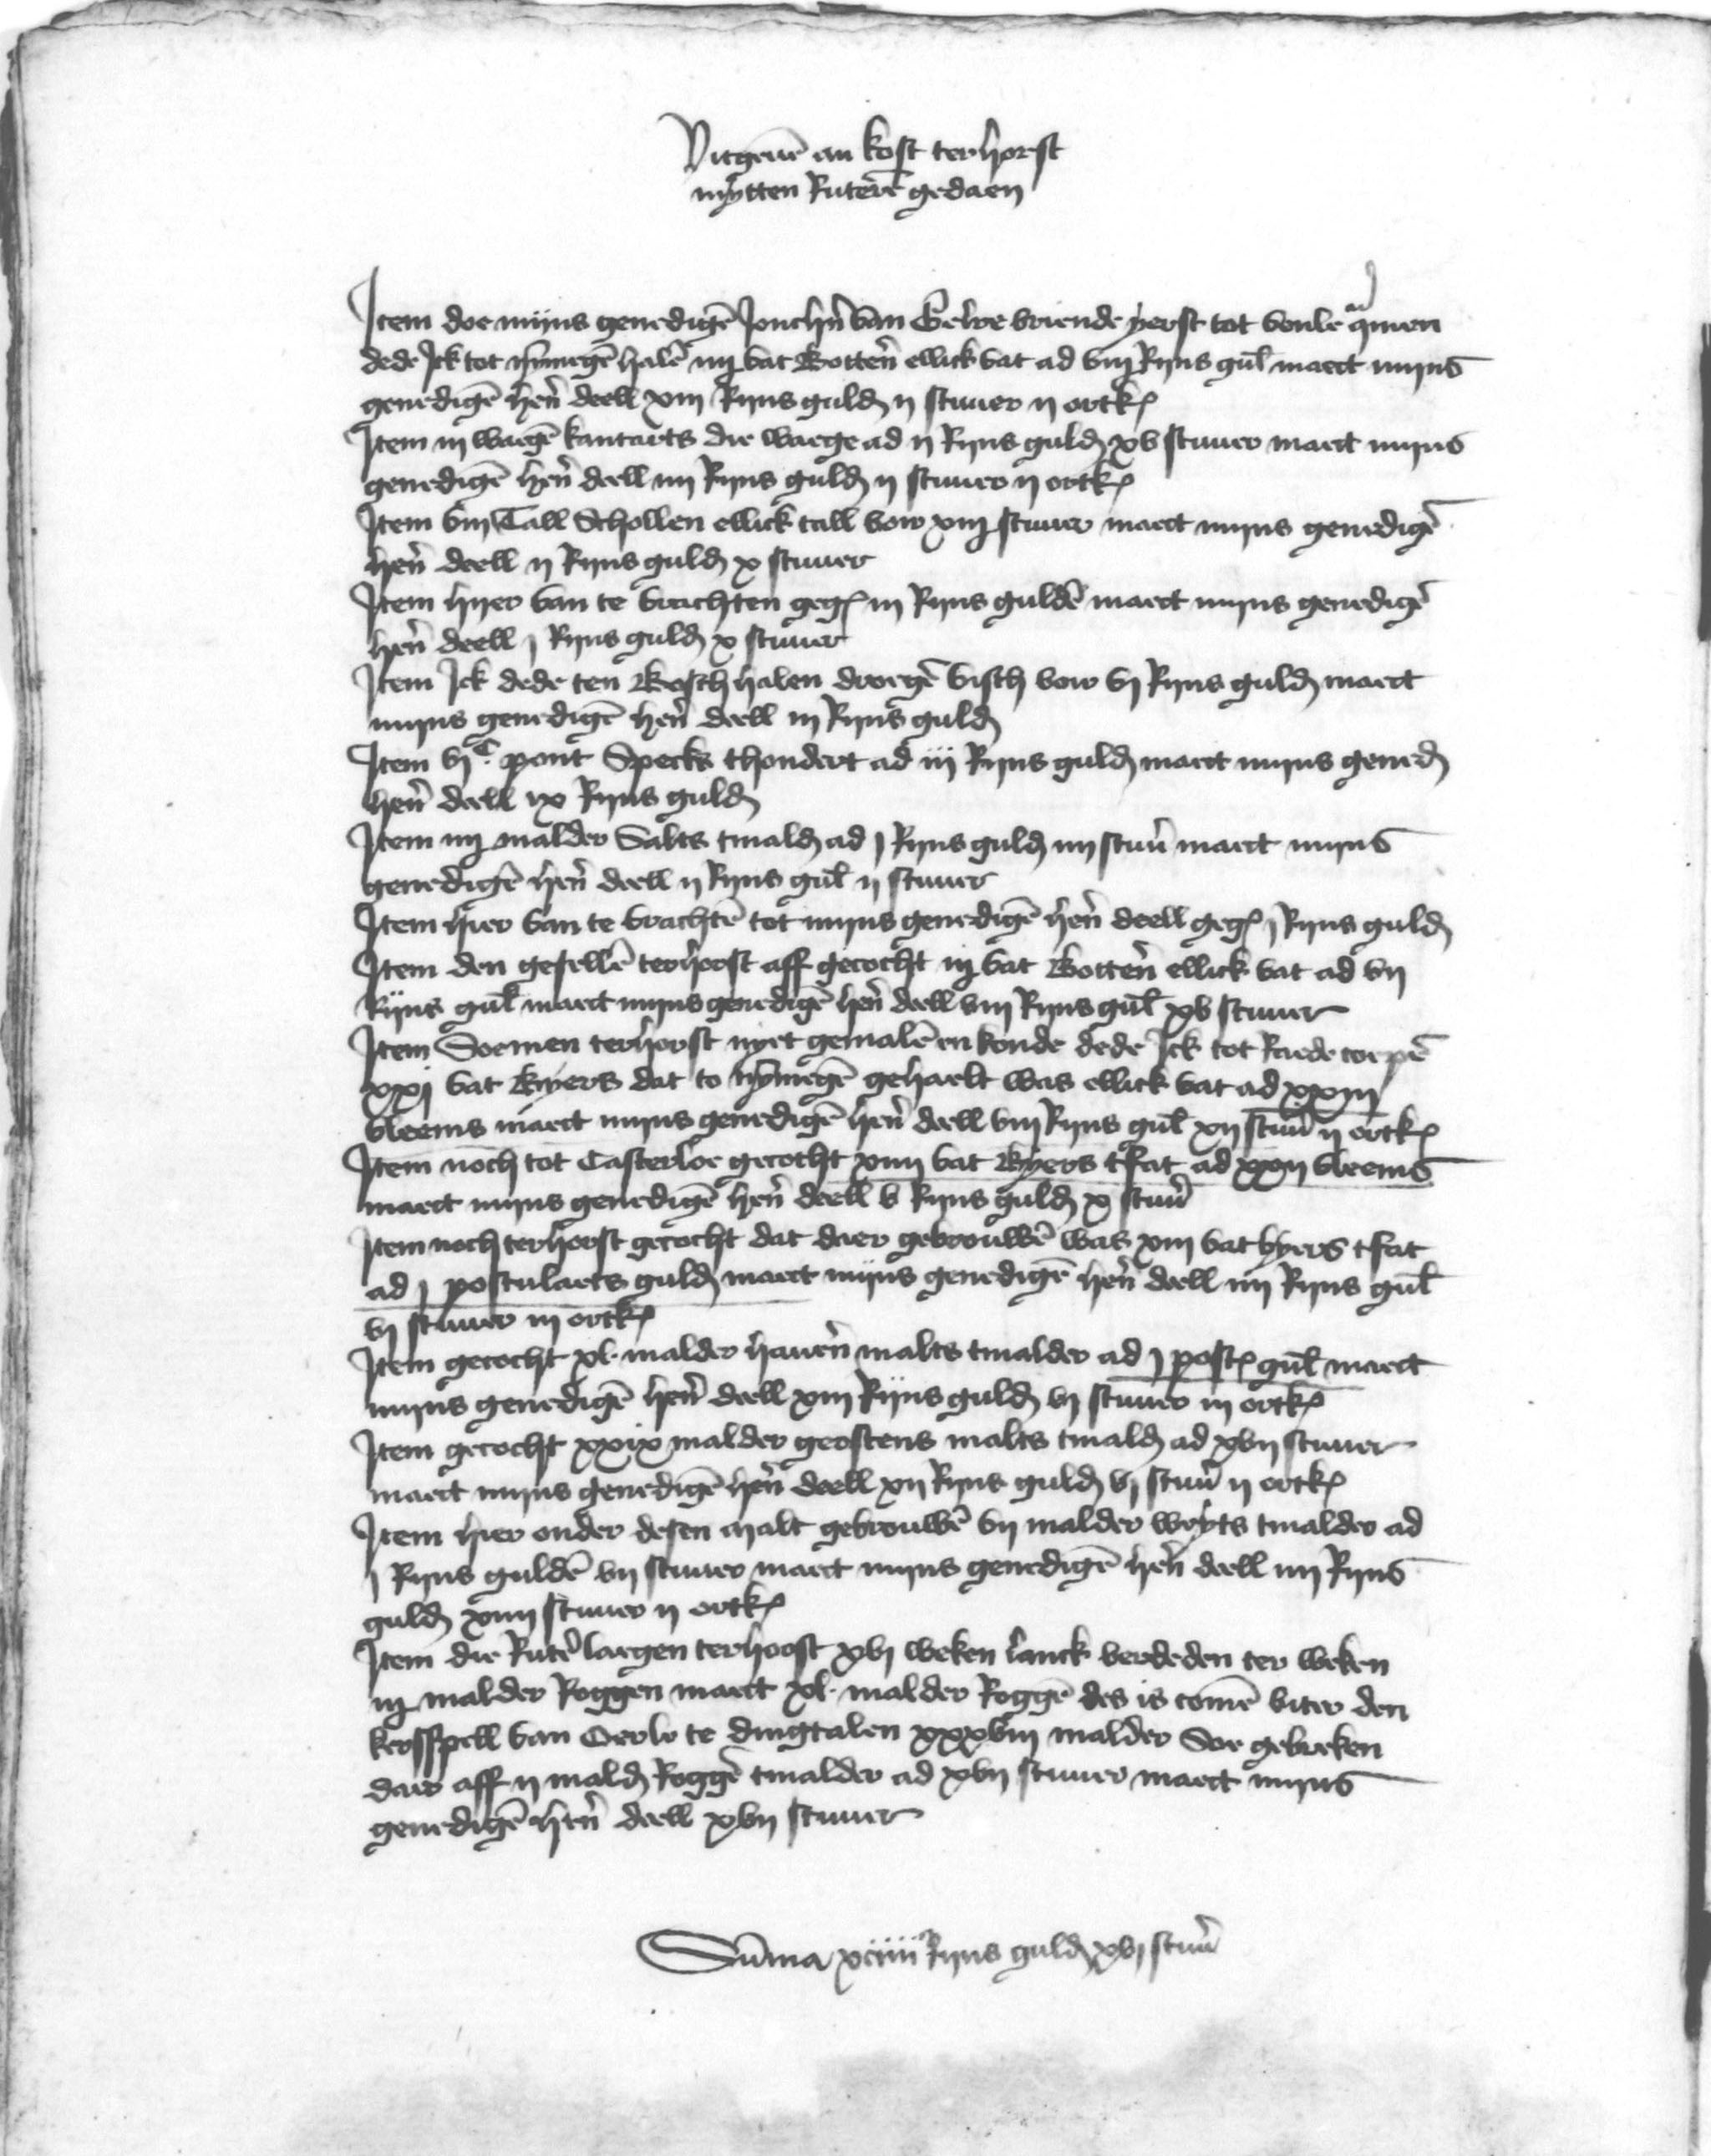 Vitgeuē an kost terhorst
mytten Ruterē gedaen
Item doe mijns genedigē Jonchn̄ van Gelre vriende yerst tot venle quāmen
dede Ick tot nymegē halē iiij vat Botten̄ ellick vat ad viij Rijns gul maect mijns
genedigē hen̄ deell xiiij Rijns guld ij stuuer ij ortk
Item iij waegē kantarts die waege ad ij Rijns guld xv stuuer maect mijns
genedigē hen̄ deell iiij Rijns guld ij stuuer ij ortk
Item viij Tall Schollen ellick tall vor xiij stuuer maect mijns genedigē
hen̄ deell ij Rijns guld x stuuer
Item hyer van te vrachten geg iij Rijns guldē maect mijns genedigē
hen̄ deell j Rijns guld x stuuer
Item Ick dede ten Bosch halen droegē visch vor vj Rijns guld maect
mijns genedigē hen̄ deell iij Rijns guld
Item vjᶜ pont Specks thondert ad iij Rijns guld maect mijns gened
hen̄ deell ix Rijns guld
Item iiij malder Salts tmald ad j Rijns guld iiij stuū maect mijns
genedigē hen̄ deell ij Rijns gul ij stuuer
Item hier van te vrachtē tot mijns genedigē hen̄ deell geg j Rijns guld
Item den gesellē terhorst aff gecocht iij vat Botten̄ ellick vat ad vij
Rijns gul maect mijns genedigē hen̄ deell viij Rijns gul xv stuuer
Item Soemen terhorst nyet gemalē en konde dede Ick tot Raede
xxj vat Byers dat to nymegē gehaelt was ellick vat ad xxiij
vleems maect mijns genedigē hen̄ deell viij Rijns gul xij stuū ij ortk
Item noch tot Casterloe gecocht xiiij vat Byers tfat ad xxij vleems
maect mijns genedigē hen̄ deell v Rijns guld x stuū
Item noch terhorst gecocht dat daer gebrouwē was xiij vat byers tfat
ad j postulaets guld maect mijns genedigē hen̄ deell iiij Rijns gul
vj stuuer iij ortk
Item gecocht xl malder hauen̄ malts tmalder ad j post gul maect
mijns genedigē hen̄ deell xiij Rijns guld vj stuuer iij ortk
Item gecocht xxix malder gerstens malts tmald ad xvij stuuer
maect mijns genedigē hen̄ deell xij Rijns guld vj stuū ij ortk
Item hier onder desen malt gebrouwē vij malder weyts tmalder ad
j Rijns guldē vij stuuer maect mijns genedigē hen̄ deell iiij Rijns
guld xiiij stuuer ij ortk
Item die Rutē laegen terhorst xvj weken lanck verdeden ter weken
iij malder Roggen maect xl malder Roggē des is comē viter den
kersspell van Oerlo te dingtalen xxxviij malder Soe gebreken
daer aff ij mald Roggē tmalder ad xvij stuuer maect mijns
genedigē hen̄ deell xvij stuuer
Sum̄a xciiij Rijns guld xvj stuū